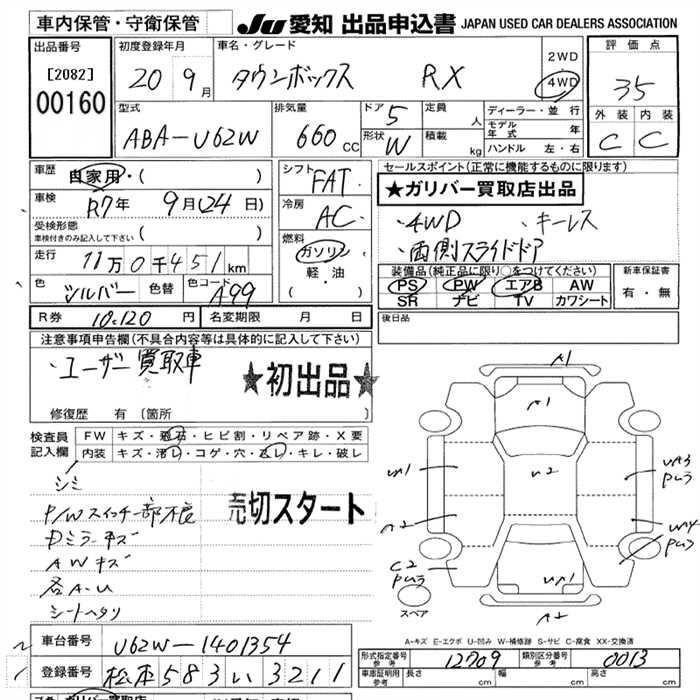 車内保管・守衛保管
JU 愛知 出品申込書 JAPAN USED CAR DEALERS ASSOCIATION
出品番号
[2082]
00160
初度登録年月
20 9月
車名・グレード
タウンボックス RX
2WD
4WD
評価点
35
外装 内装
C C
型式
ABA-U62W
排気量
660 CC
ドア 5
形状 W
定員 人
積載 kg
ディーラー・並行
モデル年式 年
ハンドル 左・右
車歴 自家用・( )
車検 R7年 9月(24日)
受検形態
車検付きのみ記入して下さい ( )
走行 11万0千451km
色 シルバー 色替 色コード A99
R券 10,120 円 名変期限 月 日
シフト FAT
冷房 AC
燃料
ガソリン
軽・油
( )
セールスポイント(正常に機能するものに限ります)
★ガリバー買取店出品
・4WD ・キーレス
・両側スライドドア
装備品(純正品に限り○をつけてください)
PS PW エアB AW
SR ナビ TV カワシート
新車保証書
有・無
後日品
注意事項申告欄(不具合内容等は具体的に記入して下さい)
・ユーザー買取車
★初出品★
修復歴 有(箇所 )
検査員記入欄
FW キズ・飛石・ヒビ割・リペア跡・X要
内装 キズ・汚レ・コゲ・穴・スレ・キレ・破レ
シミ
P/Wスイッチ一部不良
Dミラーキズ
AWキズ
各A-U
シートヘタリ
売切スタート
A1
A1
UA1
U2
UA3
A2
W4
C2
UA1
A2
スペア
A-キズ E-エクボ U-凹み W-補修跡 S-サビ C-腐食 XX-交換済
車台番号 U62W-1401354
登録番号 松本583い3211
型式指定番号 参考 12709
類別区分番号 参考 0013
車庫証明用 参考 長さ cm 幅 cm 高さ cm
ガリバー買取店